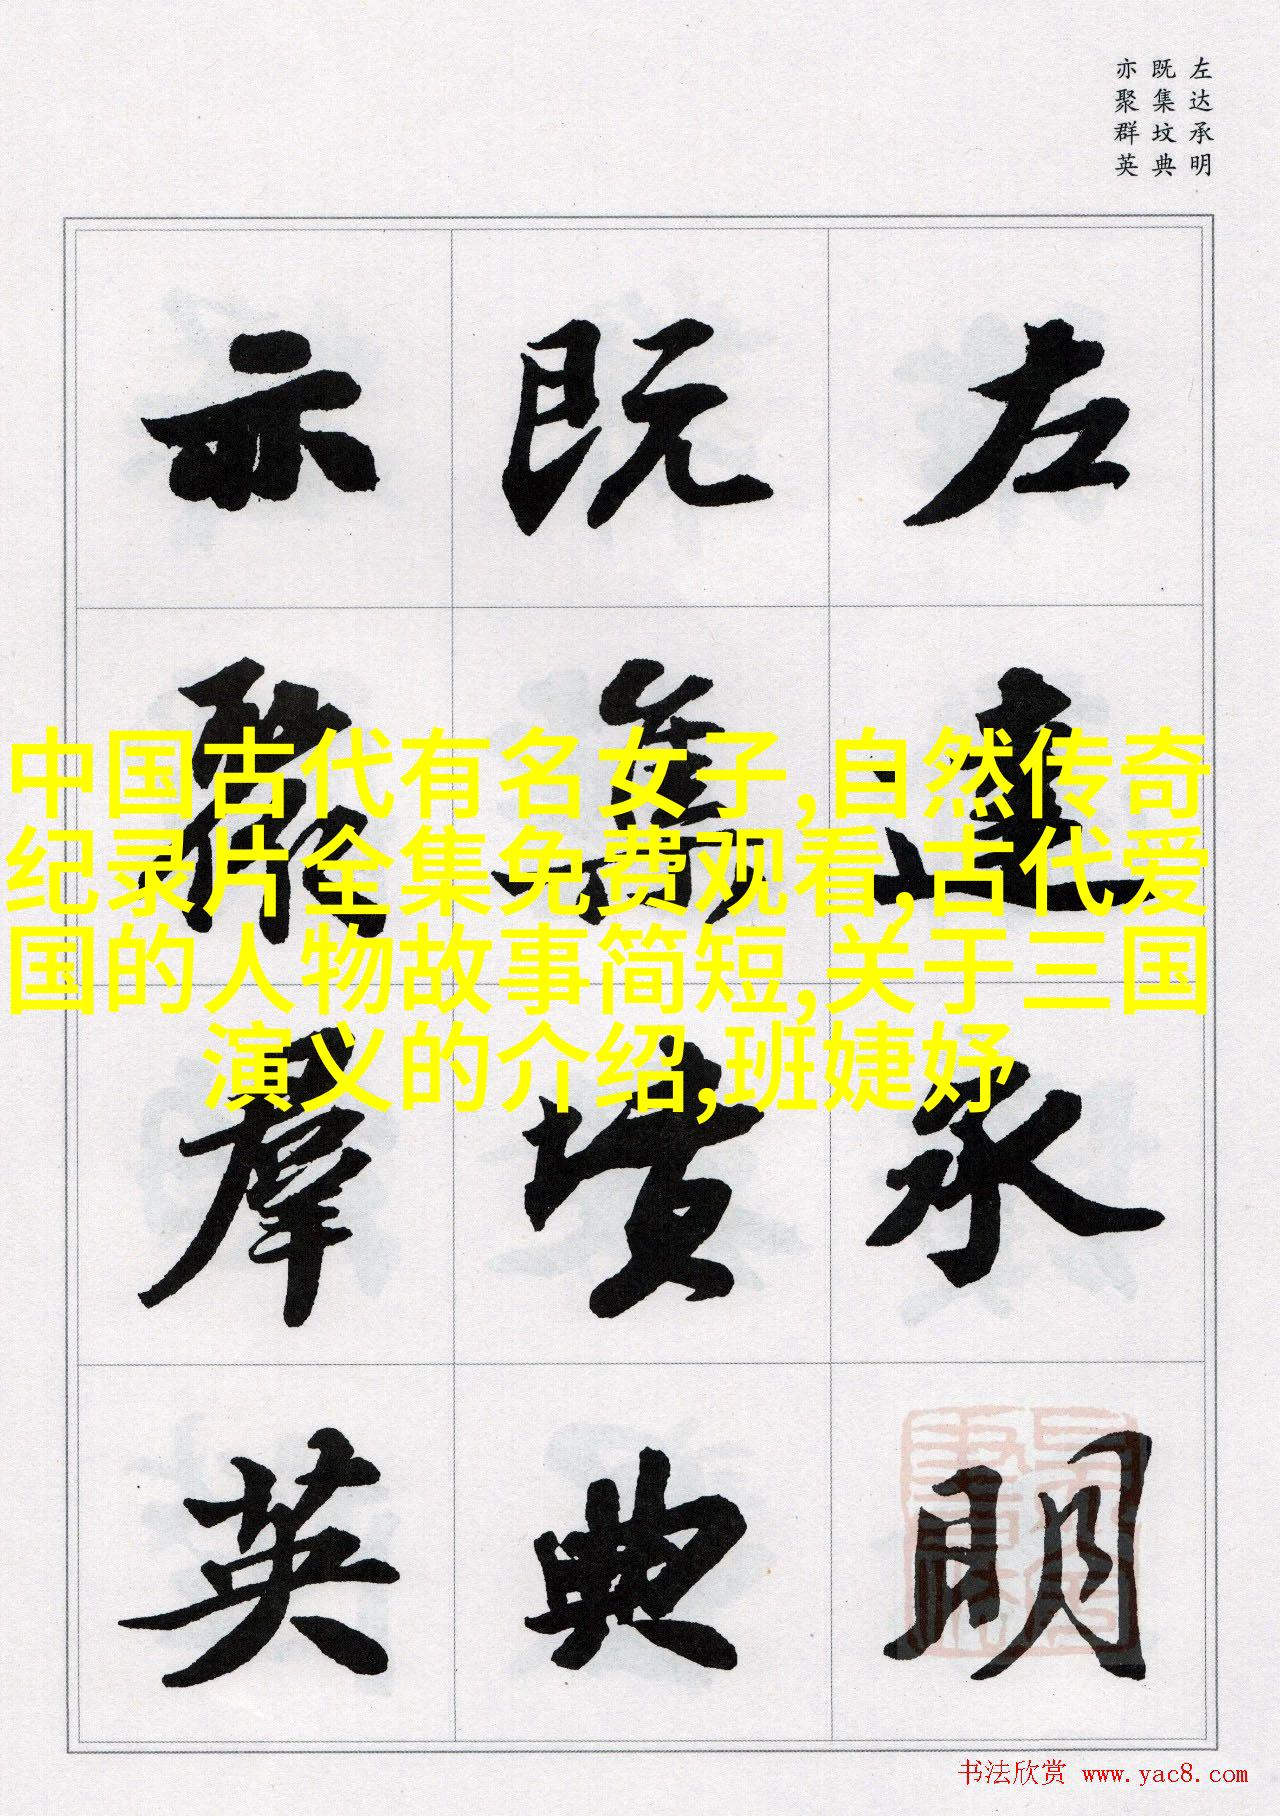 左达承明
既集坟典
亦聚群英
左達承明
既集墳典
亦聚羣英
中国古代有名女子,自然传奇
纪录片全集免费观看,古代爱
国的人物故事简短,关于三国
演义的介绍,班婕妤
书法欣赏 www.yac8.com